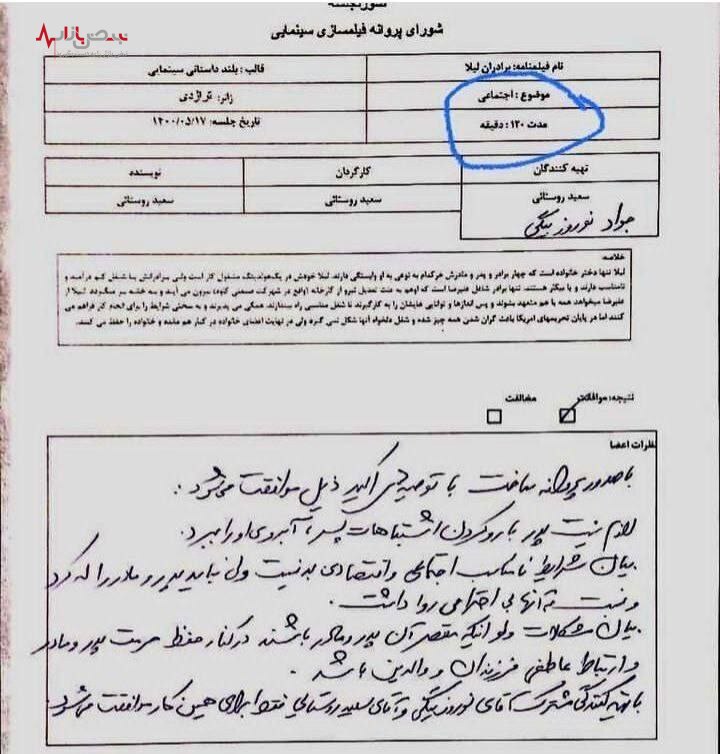 صورتجلسه
شورای پروانه فیلمسازی سینمایی
نام فیلمنامه: برادران لیلا
قالب : بلند داستانی سینمایی
موضوع : اجتماعی
ژانر: تراژدی
مدت ۱۲۰ : دقیقه
تاریخ جلسه: ۱۴۰۰/۰۵/۱۷
تهیه کنندگان
کارگردان
نویسنده
سعید روستائی
سعید روستائی
سعید روستائی
جواد نوروزبیگی
خلاصه
لیلا تنها دختر خانواده است که چهار برادر و پدر و مادرش هرکدام به نوعی به او وابستگی دارند. لیلا خودش در یک هولدینگ مشغول کار است ولی برادرانش یا شغلی کم درآمد و
نامناسب دارند و یا بیکار هستند. تنها برادر شاغل علیرضا است که اوهم به علت تعدیل نیرو از کارخانه (واقع در شرکت صنعتی کاوه) بیرون می آیند و به خانه بر میگردد. لیلا از
علیرضا میخواهد همه با هم متحد بشوند و پس اندازها و توانایی هایشان را به کارگیرند تا شغل مناسبی راه بیندازند. همگی می پذیرند و به سختی شرایط را برای انجام کار فراهم می
کنند اما در پایان تحریمهای امریکا باعث گران شدن همه چیز شده و شغل دلخواه آنها شکل نمی گیرد ولی در نهایت اعضای خانواده در کنار هم مانده و خانواده را حفظ می کنند.
نتیجه: موافقت
مخالفت
نظرات اعضا
با صدور پروانه ساخت با توصیه های اکید ذیل موافقت می شود :
لازم نیست پدر با رو کردن اشتباهات پسر، آبروی او را ببرد.
بیان شرایط نامناسب اجتماعی و اقتصادی بد نیست ولی نباید پدر و مادر را له کرد
و نسبت به آنها بی احترامی روا داشت.
بیان مشکلات ولو اینکه مقصر آن پدر و مادر باشند در کنار حفظ حرمت پدر و مادر
و ارتباط عاطفی فرزندان و والدین باشد.
با تهیه کنندگی مشترک آقای نوروزبیگی و آقای سعید روستائی فقط برای همین کار موافقت می شود.